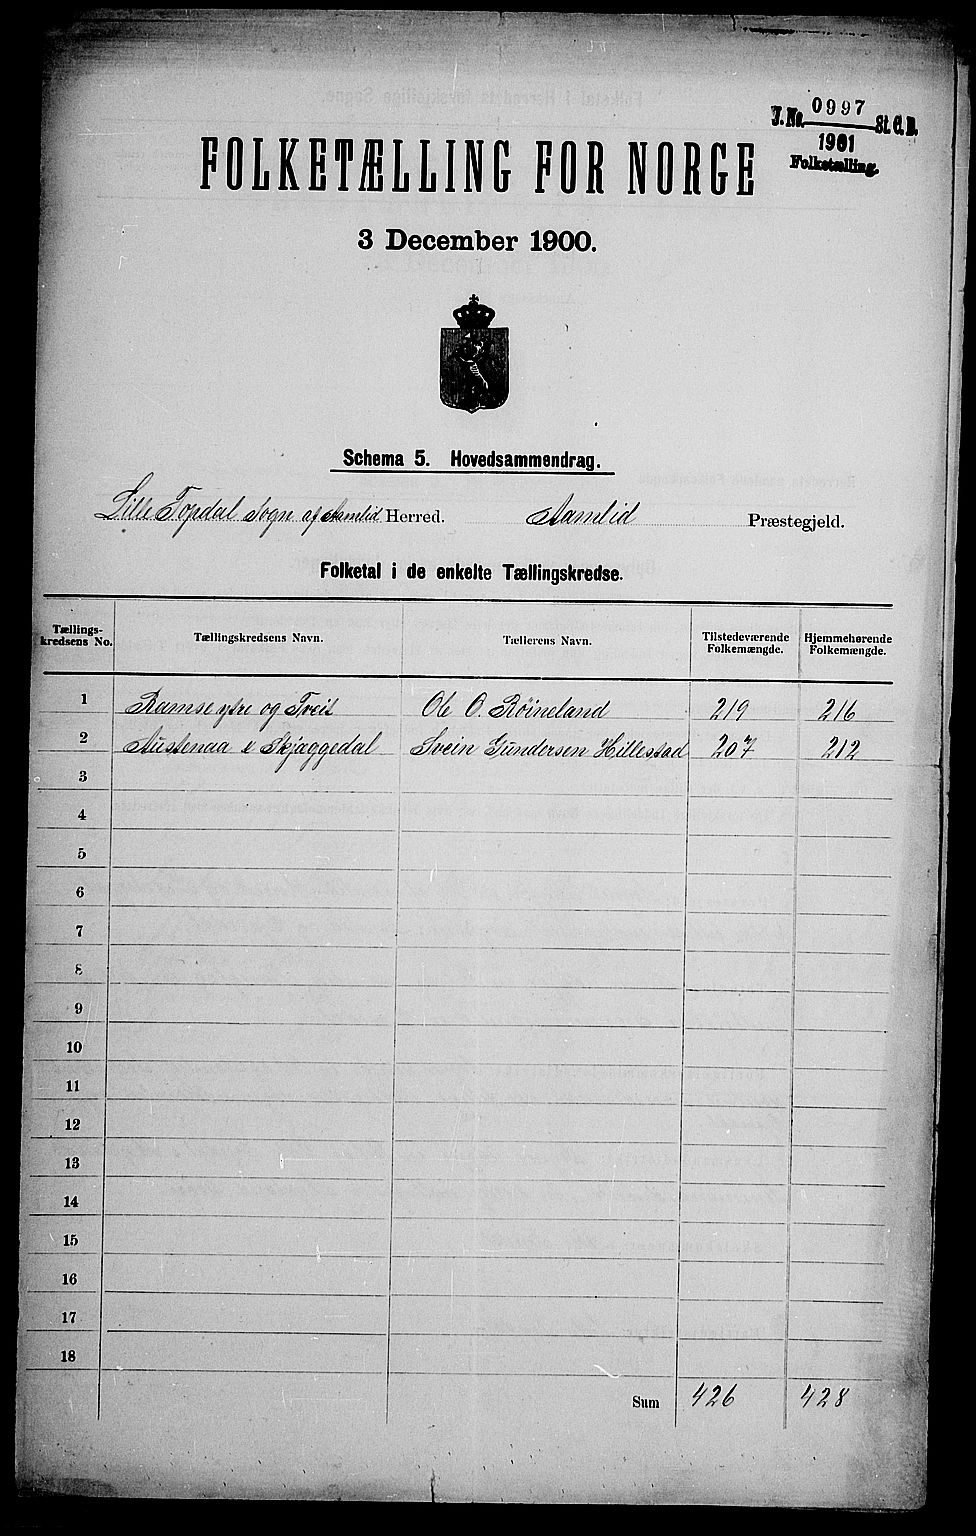 J.No. 0997 St. C. B.
1901
Folketælling.
FOLKETÆLLING FOR NORGE
3 December 1900.
Schema 5. Hovedsammendrag.
Lille Topdal Sogn af Aamlid Herred. Aamlid Præstegjeld.
Folketal i de enkelte Tællingskredse.
Tællings-kredsens No. Tællingskredsens Navn. Tællerens Navn. Tilstedeværende Folkemængde. Hjemmehørende Folkemængde.
1 Ramse ytre og Tveit Ole O. Röineland 219 216
2 Austenaa & Skjæggedal Svein Gundersen Hillestad 207 212
3
4
5
6
7
8
9
10
11
12
13
14
15
16
17
18
Sum 426 428